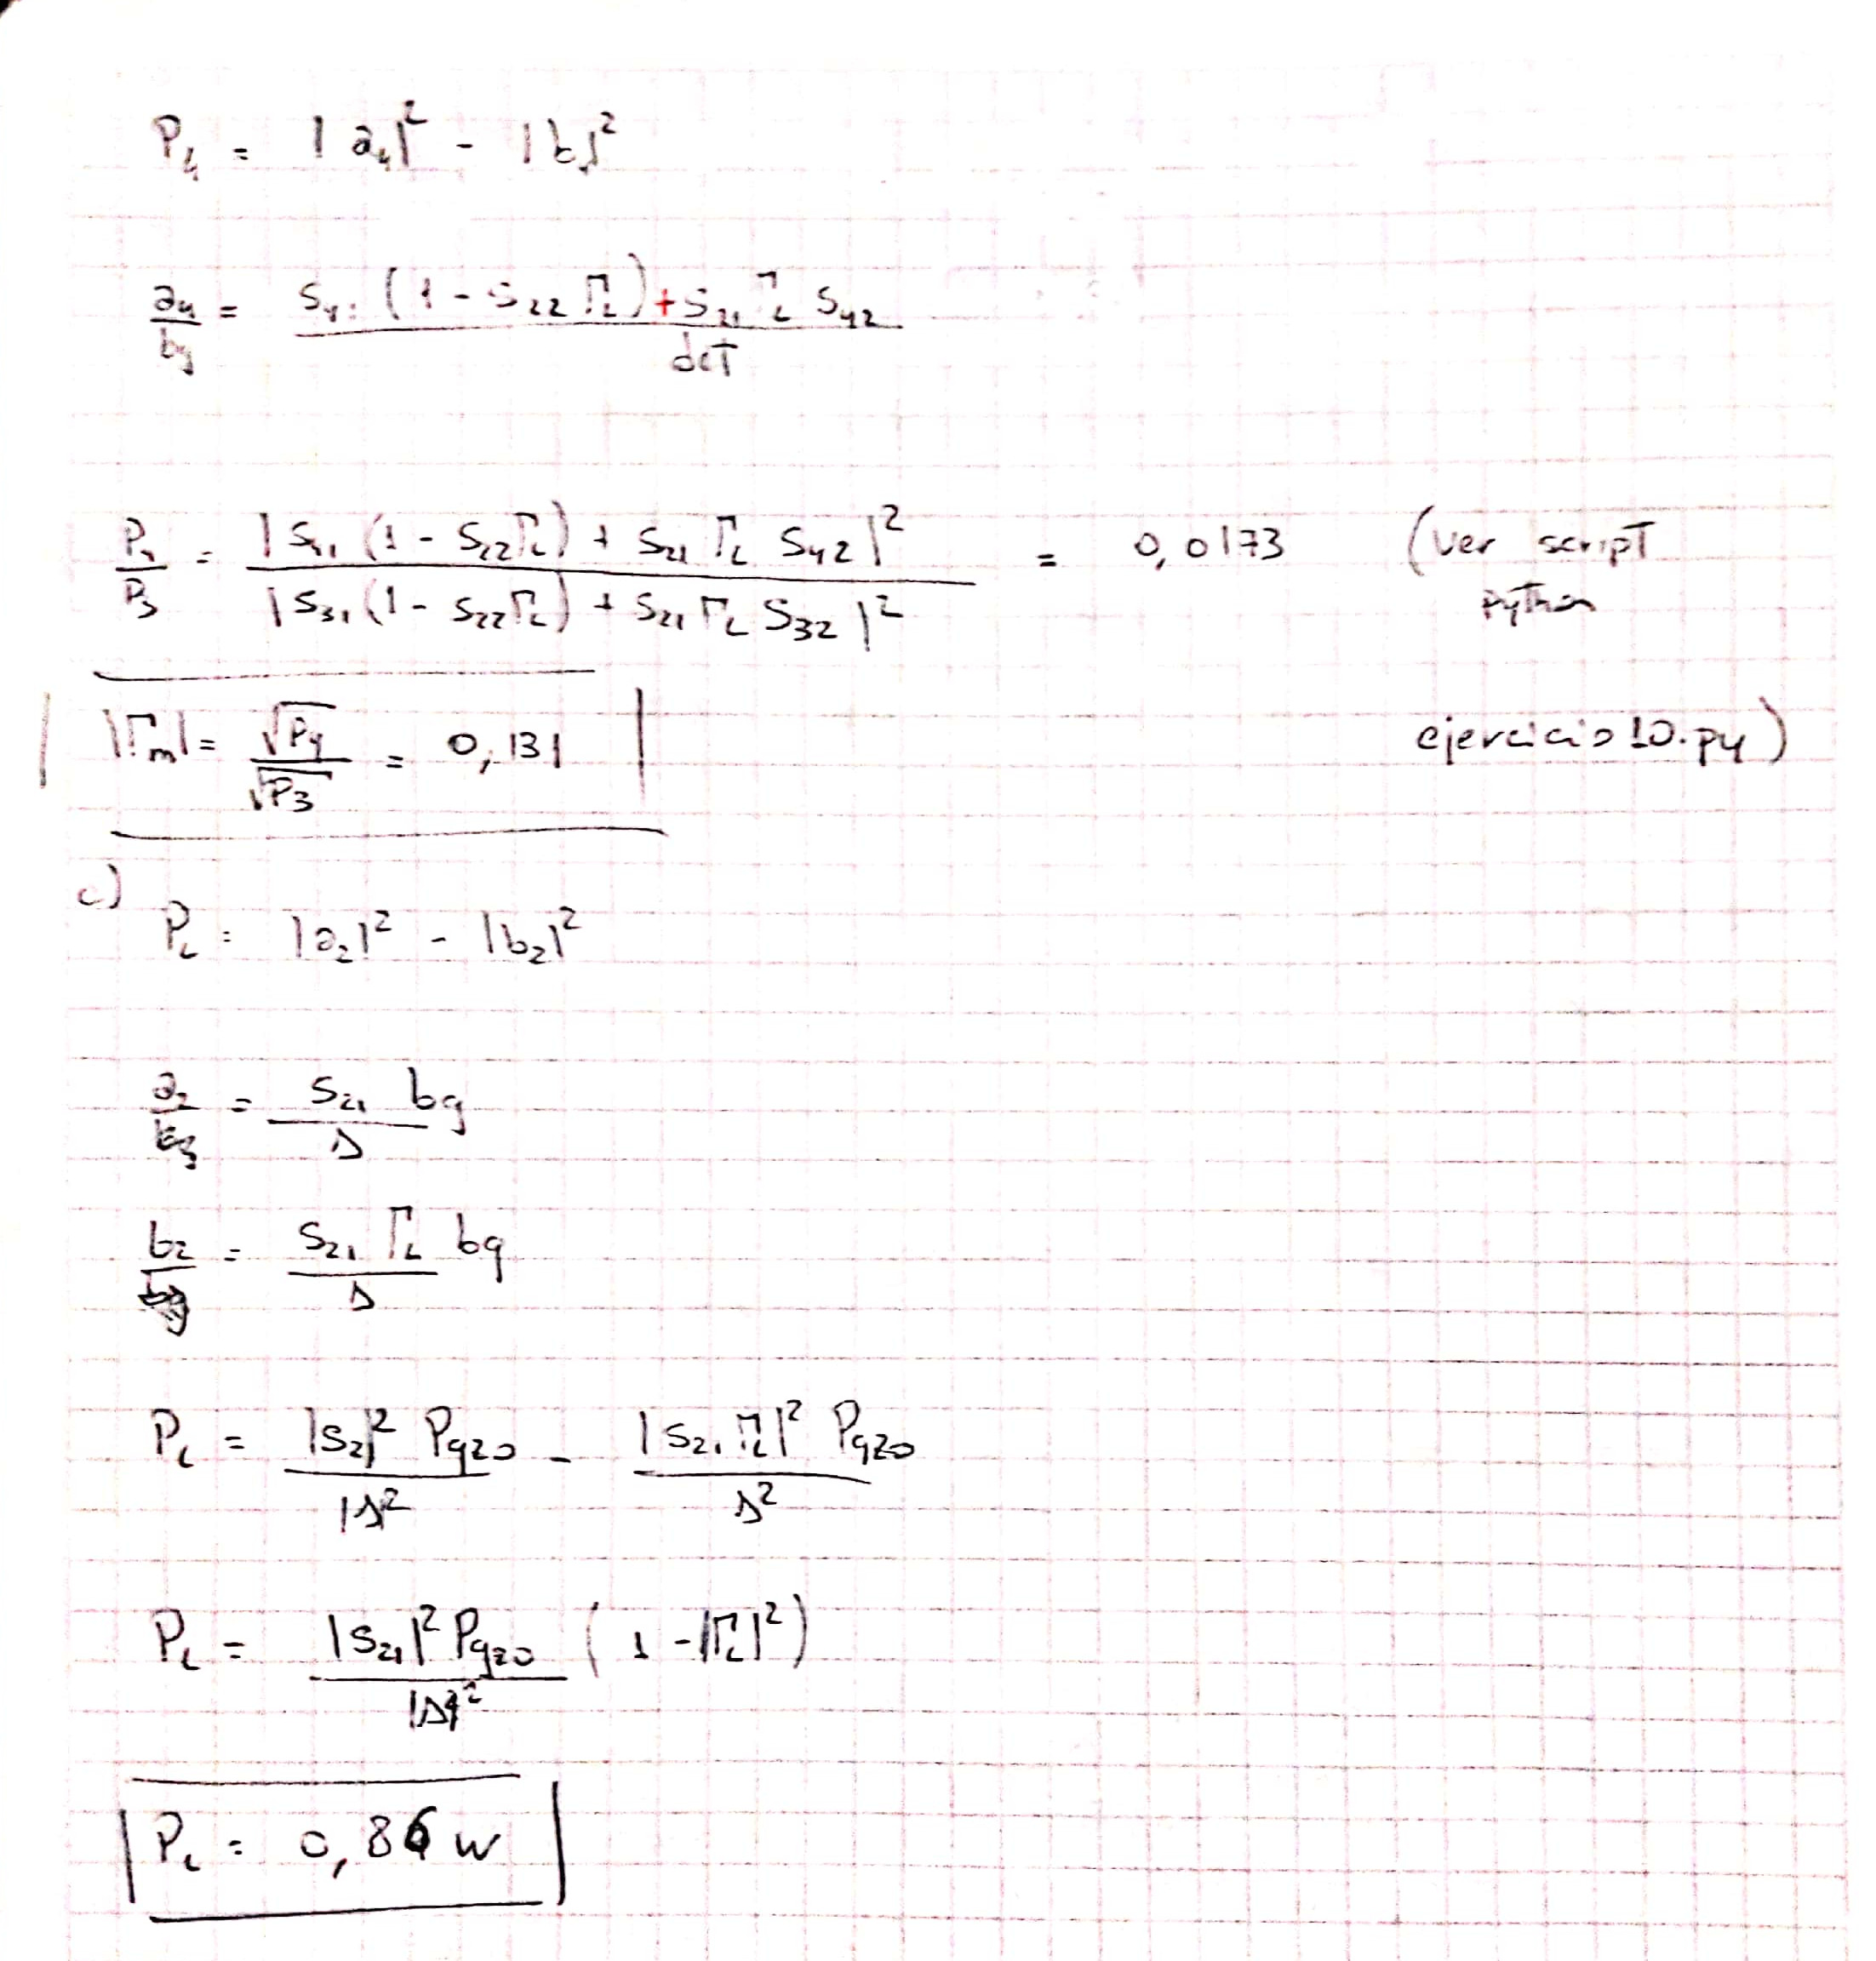 P₄ = |a₄|² - |b₄|²
a₄/bg = (S₄₁ (1 - S₂₂ Γ_L) + S₂₁ Γ_L S₄₂) / det
P₄/P₃ = |S₄₁ (1 - S₂₂ Γ_L) + S₂₁ Γ_L S₄₂|² / |S₃₁ (1 - S₂₂ Γ_L) + S₂₁ Γ_L S₃₂|² = 0,0173 (ver script
python
|Γm| = √P₄ / √P₃ = 0,131 ejercicio10.py)
c)
P_L = |a₂|² - |b₂|²
a₂/bg = S₂₁ bg / Δ
b₂/bg = S₂₁ Γ_L bg / Δ
P_L = |S₂₁|² Pgz0 / |Δ|² - |S₂₁ Γ_L|² Pgz0 / Δ²
P_L = |S₂₁|² Pgz0 / |Δ|² (1 - |Γ_L|²)
P_L = 0,86 w